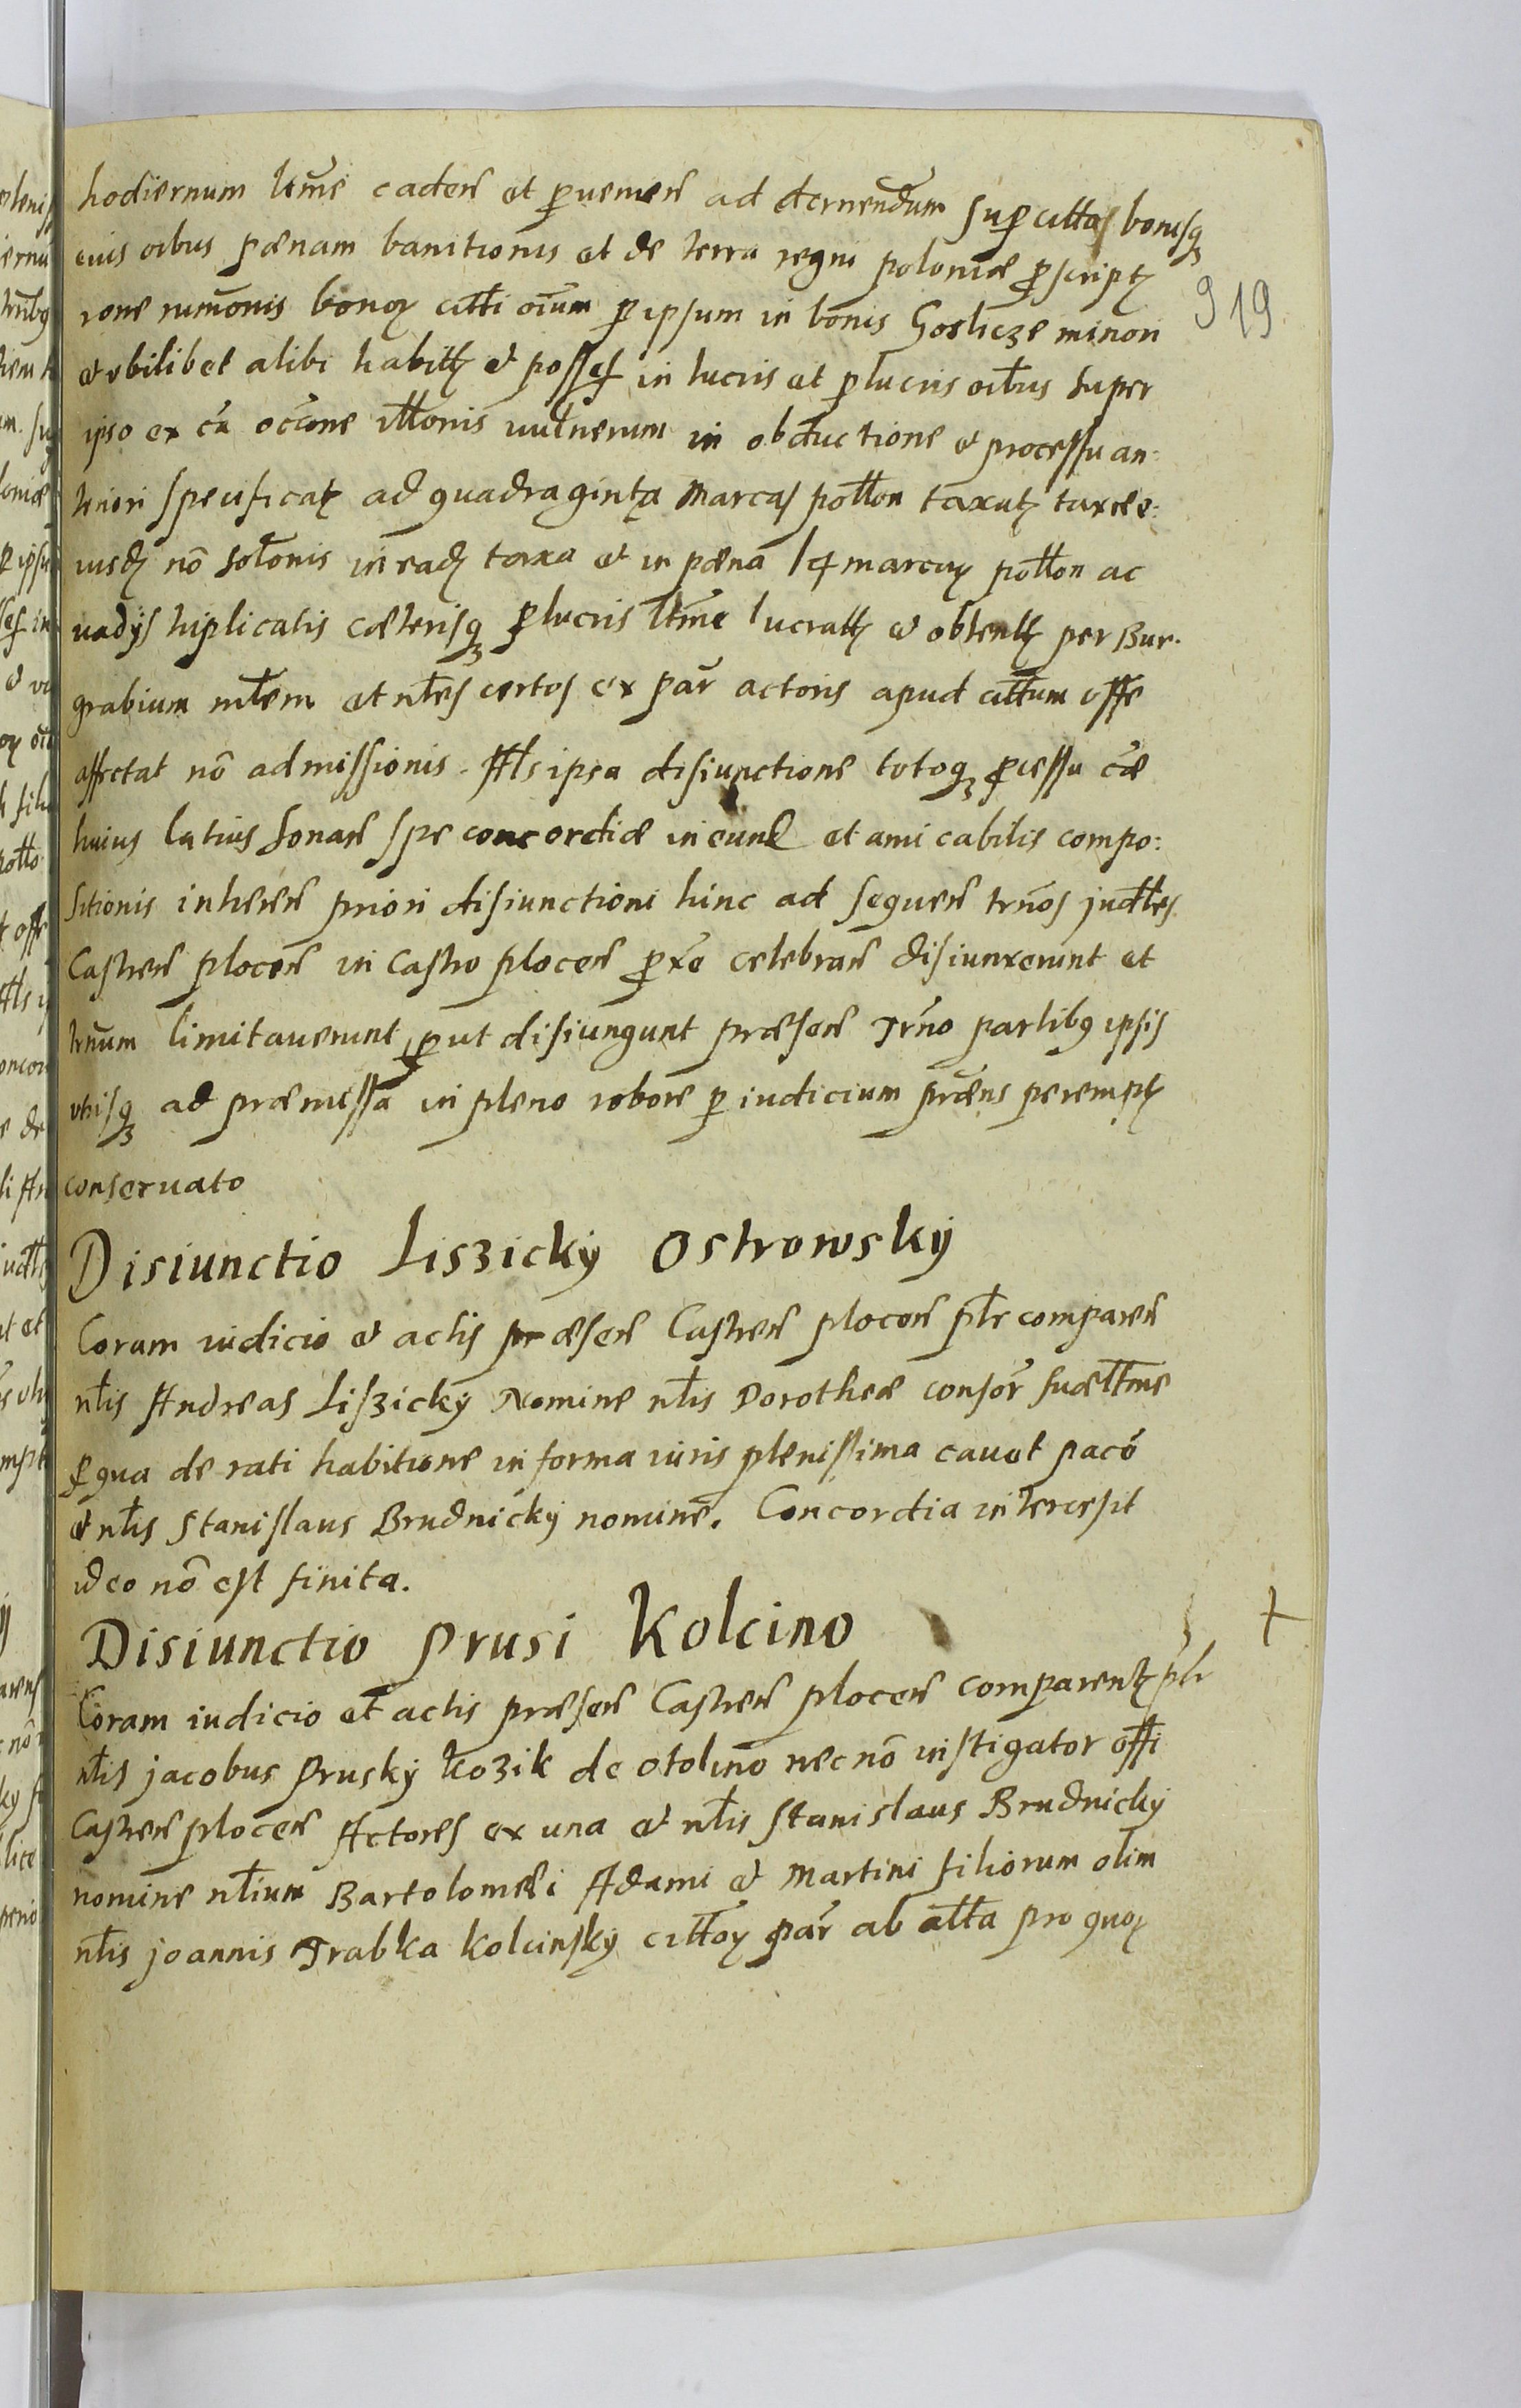 hodiernum ltme̅ caden̅ et ꝑuenien̅ ad dcernendum suꝑ citta̅s bonisqꝫ
eius oi̅bus pænam banitionis et de terra regni poloniæ ꝓscriptꝫ
ro̅ne rumo̅nis bonoꝝ citti̅ oi̅um ꝑ ipsum in bonis Goslicze minori
et vbilibet alibi habittꝫ et posses̅ in lucris et ꝑlucris oi̅bus super
ipso ex ca̅ occ̅one illo̅nis uulnerum in obductione et processu an:
teriori specificatꝫ ad quadraginta marcas pollo̅n taxatꝫ taxæ e:
iusdꝫ no̅ solo̅nis in eadꝫ taxa et in pæna 14 marcaꝝ pollo̅n ac
vadijs triplicatis cæterisqꝫ ꝑlucris ltme̅ lucrattꝫ et obtenttꝫ per Bur:
grabium nl̅em et nl̅es certos ex par̅ actoris apud cittu̅m offe̅
affectat no̅ admissionis. Ptls̅ ipsa disiunctione totoqꝫ ꝓcessu cæ̅
huius latius sonan̅ spe concordiæ ineund̅ et amicabilis compo:
sitionis inhæren̅ priori disiunctioni hinc ad sequen̅ trn̅os judttes̅
Castren̅ plocen̅ in Castro plocen̅ ꝓxe̅ celebran̅ disiunxerunt et
trn̅um limitauerunt, ꝓut disiungunt præsen̅ Trn̅o partibꝫ ipsis
vtrisqꝫ ad præmissa in pleno robore ꝑ iudicium præn̅s peremptꝫ
conseruato
Disiunctio Liszicky Ostrowsky
Coram iudicio et actis præsen̅ Castren̅ plocen̅ ptr̅ comparen̅
nl̅is Andreas Liszicky Nomine nl̅is Dorotheæ consor̅ suæ ltme̅
ꝓ qua de rati habitione in forma iuris plenissima cauet paco̅
et nl̅is Stanislaus Brudnicky nomine. Concordia intercesit
ideo no̅ est finita.
Disiunctio Prusi Kolcino
Coram iudicio et actis præsen̅ Castren̅ plocen̅ comparentꝫ ptr̅
nl̅is jacobus Prusky Kozik de otolino nec no̅ instigator offi̅
Castren̅ plocen̅ Actores ex una et nl̅is Stanislaus Brudnicky
nomine nl̅ium Bartolomei Adami et Martini filiorum olim
nl̅is joannis Trabka Kolcinsky cittoꝝ par̅ ab altt̅a pro quoꝝ
919